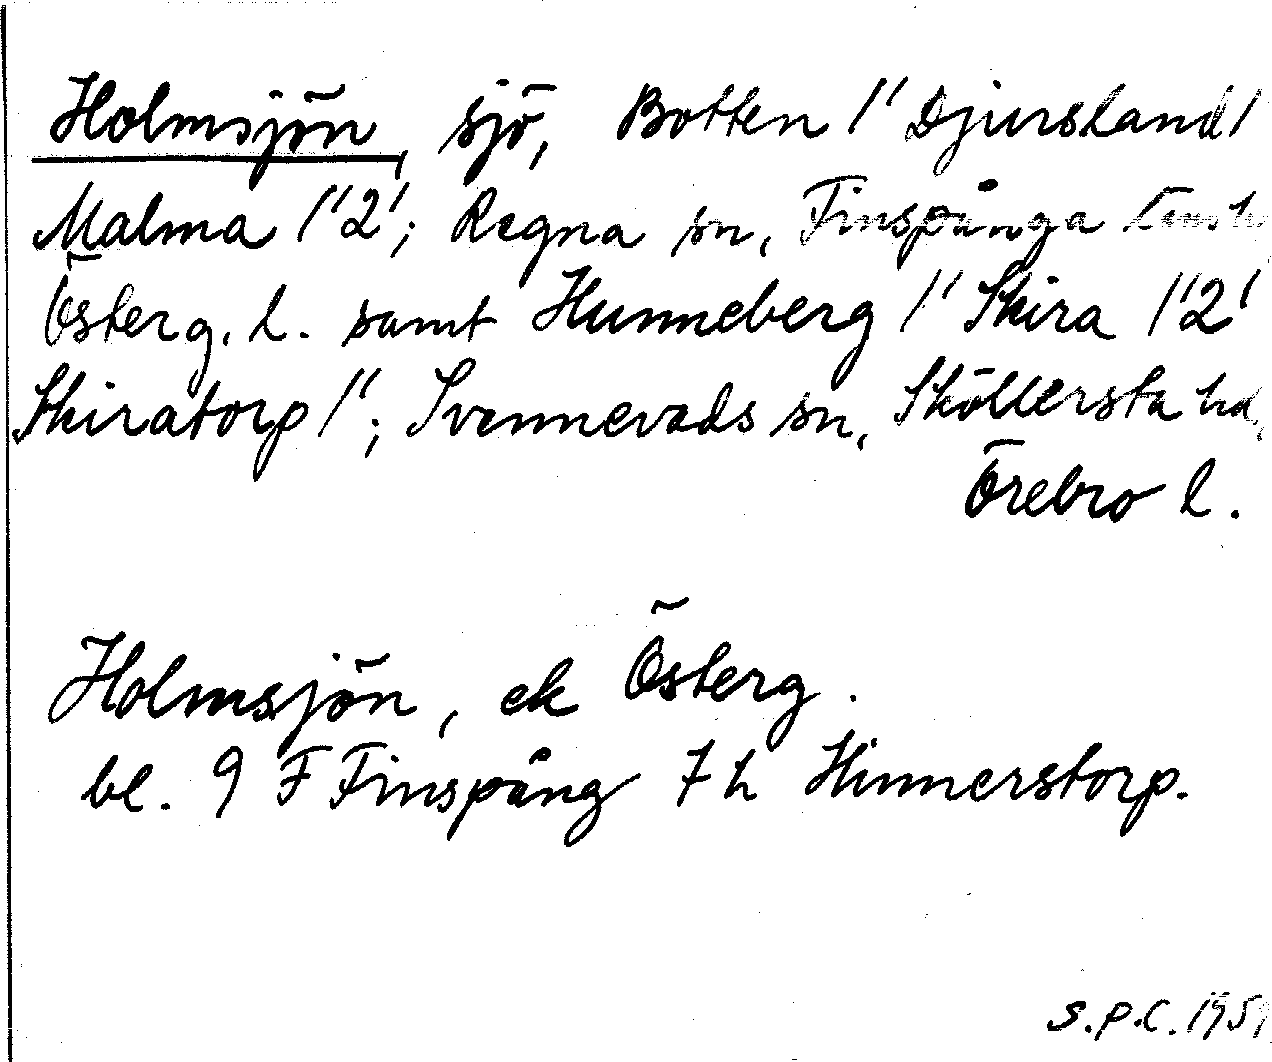 Holmsjön, sjö, Botten 1' Djursland 1
Malma 1'2'; Regna sn, Finspånga
Österg. l. samt Hunneberg 1' Skira 1'2'
Skiratorp 1'; Svennevads sn, Sköllersta hd,
Örebro l.
Holmsjön, ek Österg.
bl. 9 F Finspång 7 h Hinnerstorp.
S.P.C. 195